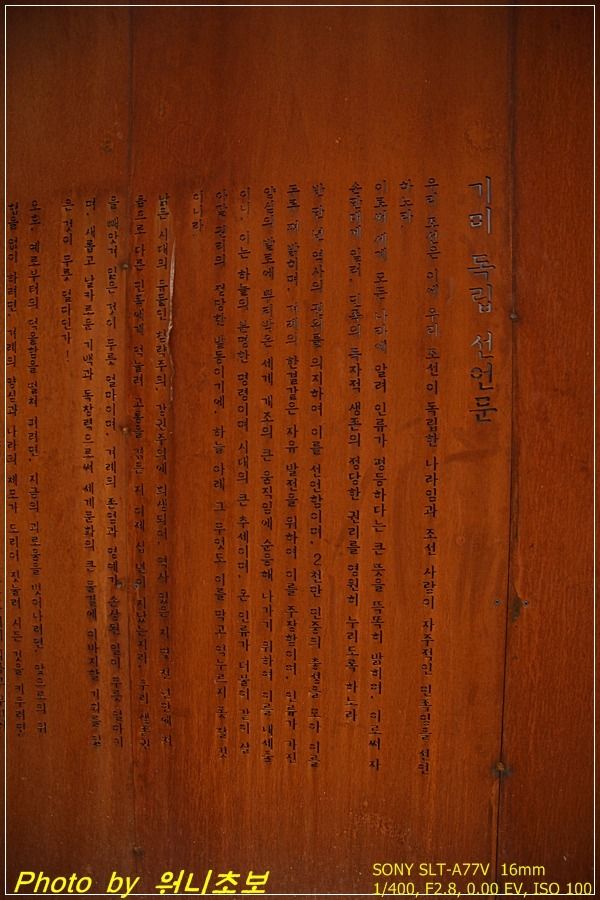 기미 독립 선언문
우리 조선은 이에 우리 조선이 독립한 나라임과 조선 사람이 자주적인 민족임을 선언
하노라.
이로써 세계 모든 나라에 알려 인류가 평등하다는 큰 뜻을 똑똑히 밝히며, 이로써 자
손만대에 일러, 민족의 독자적 생존의 정당한 권리를 영원히 누리도록 하노라.
반만년 역사의 권위를 의지하여 이를 선언함이며, 2천만 민중의 충성을 모아 이를
두루 펴 밝히며, 겨레의 한결같은 자유 발전을 위하여 이를 주장함이며, 인류가 가진
양심의 발로에 뿌리박은 세계 개조의 큰 움직임에 순응해 나가기 위하여 이를 내세움
이니, 이는 하늘의 분명한 명령이며 시대의 큰 추세이며, 온 인류가 더불어 같이 살
아갈 권리의 정당한 발동이기에, 하늘 아래 그 무엇도 이를 막고 억누르지 못할 것
이니라.
낡은 시대의 유물인 침략주의, 강권주의에 희생되어, 역사 있은 지 몇 천 년만에 처
음으로 다른 민족에게 억눌려 고통을 겪은 지 이제 십 년이 지났는지라, 우리 생존권
을 빼앗겨 잃은 것이 무릇 얼마이며, 겨레의 존엄과 영예가 손상된 일이 무릇 얼마이
며, 새롭고 날카로운 기백과 독창력으로써 세계문화의 큰 물결에 이바지할 기회를 잃
은 것이 무릇 얼마인가!
오호, 예로부터의 억울함을 떨쳐 펴려면, 지금의 괴로움을 벗어나려면, 앞으로의 위
협을 없이 하려면, 겨레의 양심과 나라의 체모가 도리어 짓눌려 시든 것을 키우려면,
Photo by 워니초보
SONY SLT-A77V 16mm
1/400, F2.8, 0.00 EV, ISO 100